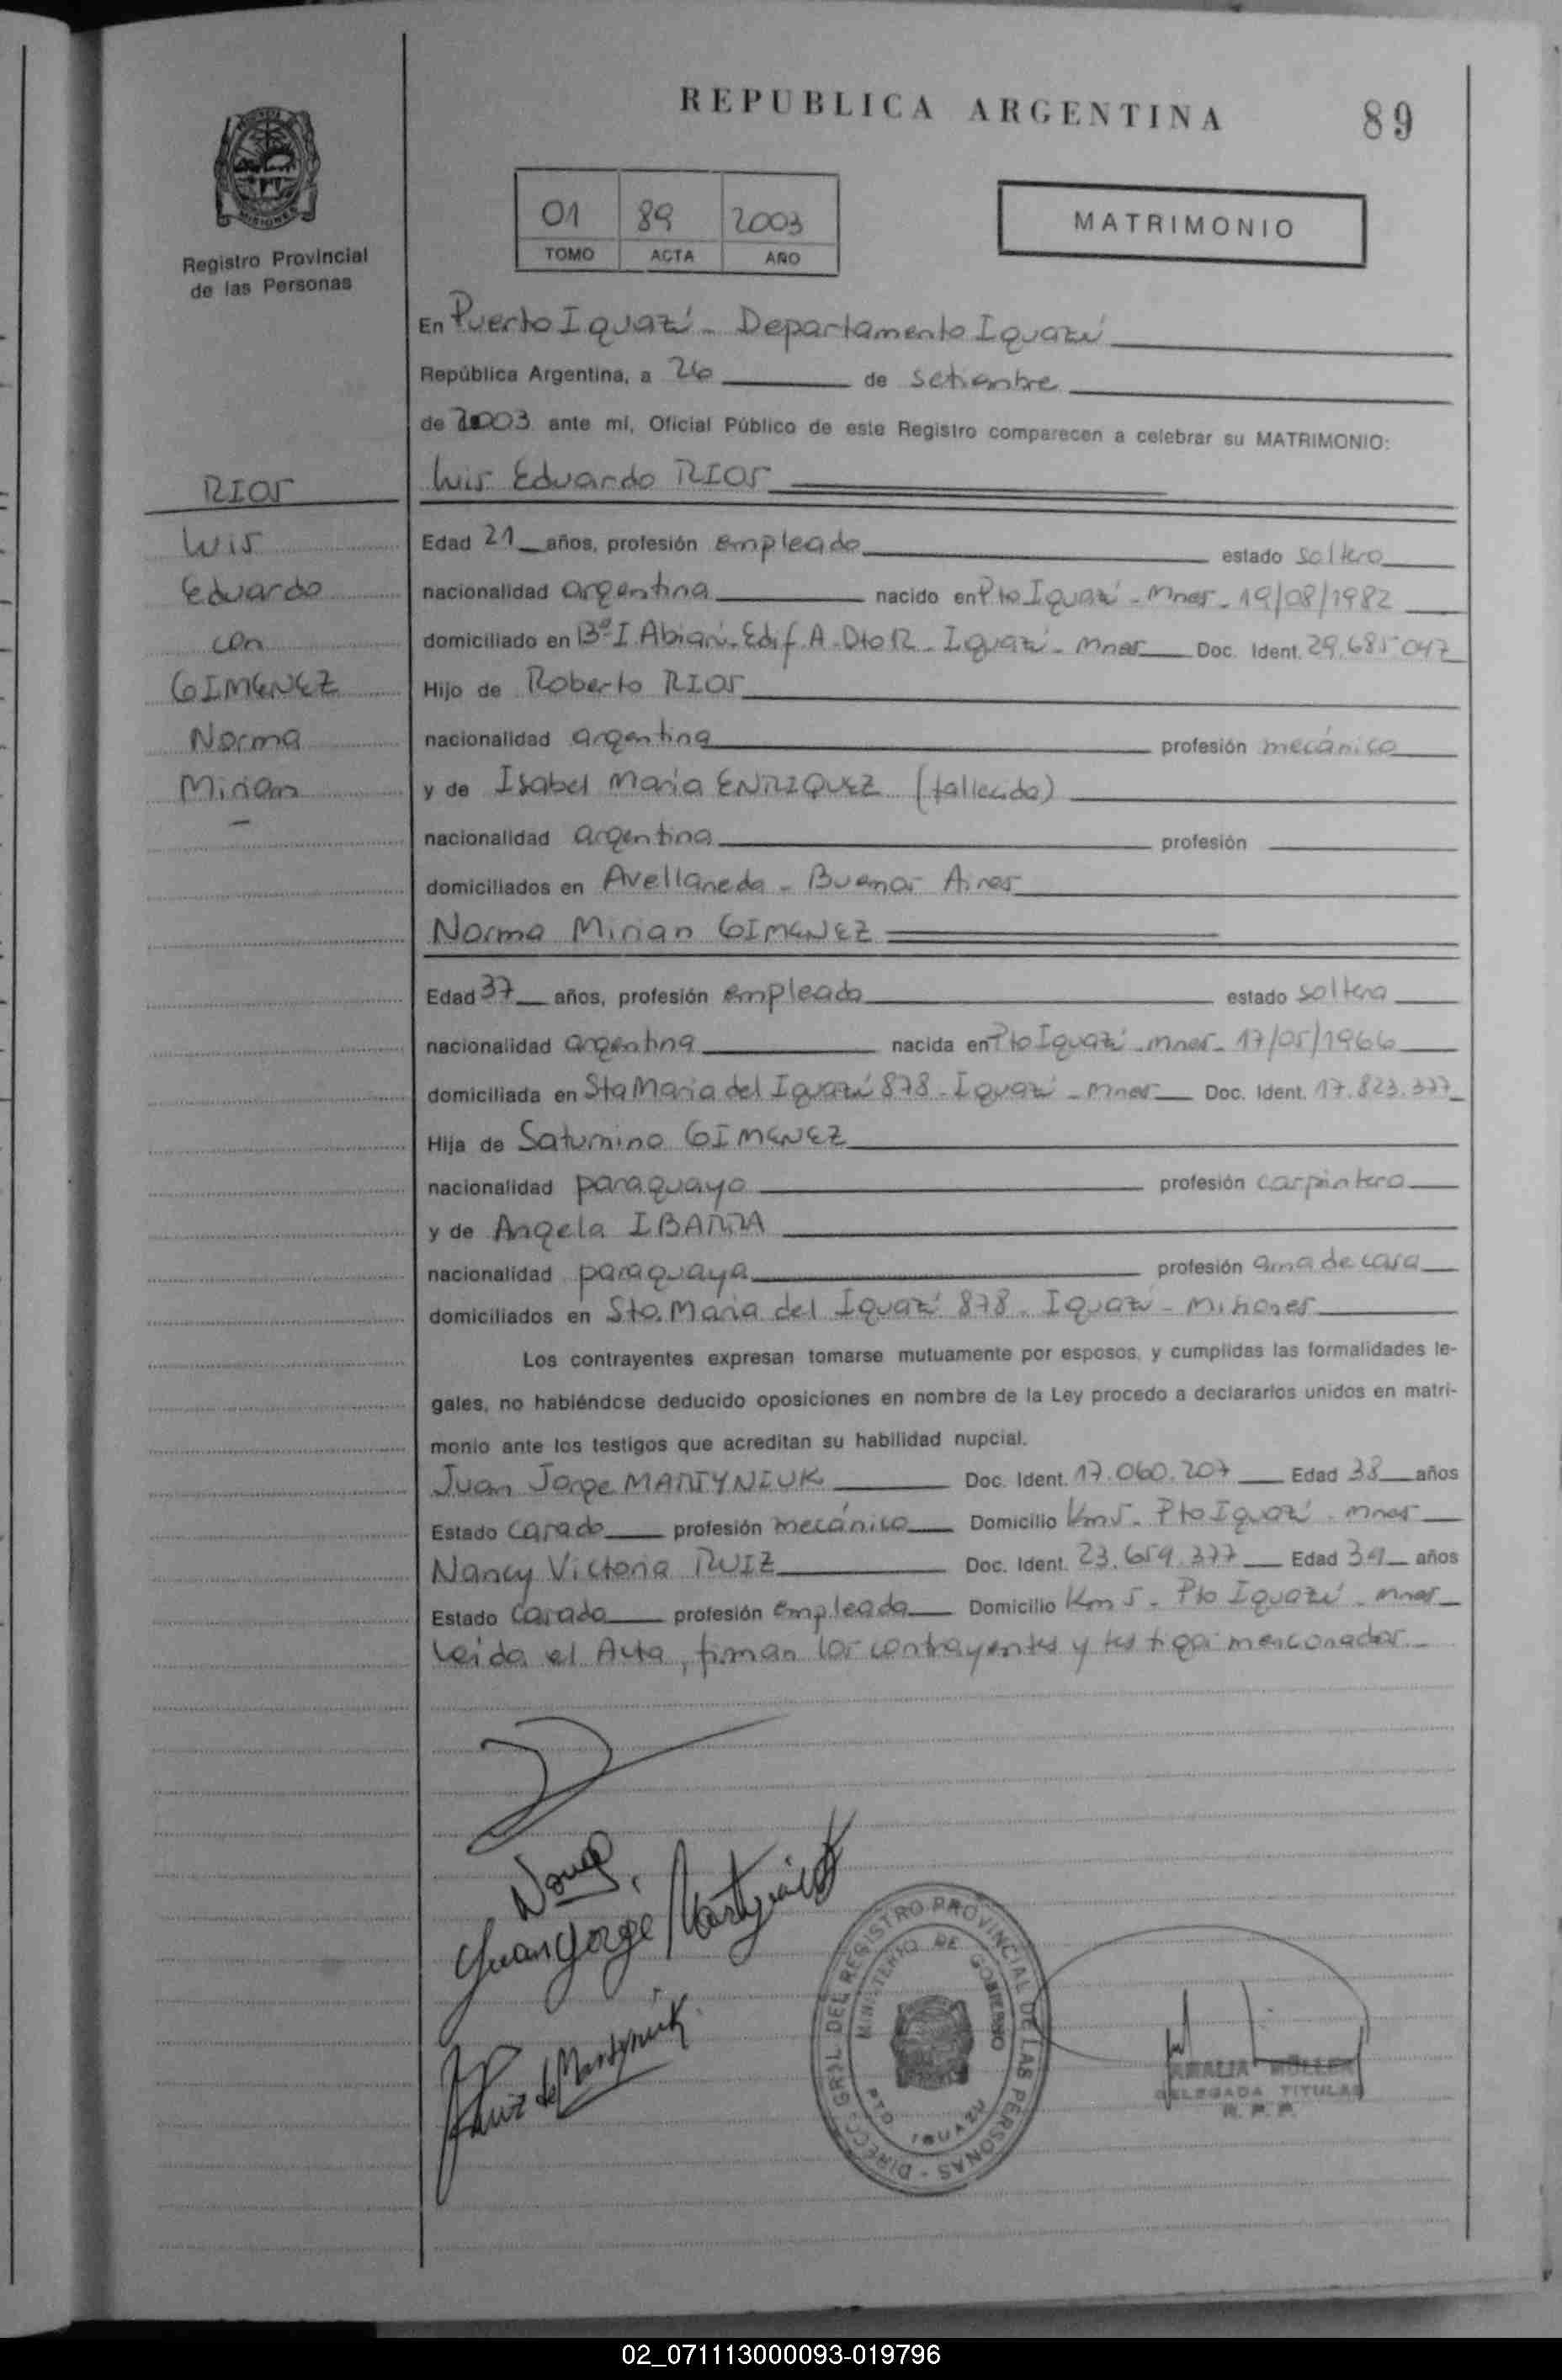 REPUBLICA ARGENTINA
89
01 89 2003
TOMO ACTA AÑO
MATRIMONIO
MISIONES
Registro Provincial
de las Personas
En Puerto Iguazú - Departamento Iguazú
República Argentina, a 26 de setiembre
de 2003 ante mí, Oficial Público de este Registro comparecen a celebrar su MATRIMONIO:
RIOS
Luis
Eduardo
con
GIMENEZ
Norma
Mirian
Luis Eduardo RIOS
Edad 21 años, profesión empleado estado soltero
nacionalidad argentina nacido en Pto Iguazú - Mnes - 19/08/1982
domiciliado en Bº I. Abiarú - Edif. A - Dto 12 - Iguazú - Mnes Doc. Ident. 29.685.047
Hijo de Roberto RIOS
nacionalidad argentina profesión mecánico
y de Isabel María ENRIQUEZ (fallecida)
nacionalidad argentina profesión
domiciliados en Avellaneda - Buenos Aires
Norma Mirian GIMENEZ
Edad 37 años, profesión empleada estado soltera
nacionalidad argentina nacida en Pto Iguazú - Mnes - 17/05/1966
domiciliada en Sta María del Iguazú 878 - Iguazú - Mnes Doc. Ident. 17.823.377
Hija de Saturnino GIMENEZ
nacionalidad paraguayo profesión carpintero
y de Angela IBARRA
nacionalidad paraguaya profesión ama de casa
domiciliados en Sta. María del Iguazú 878 - Iguazú - Misiones
Los contrayentes expresan tomarse mutuamente por esposos, y cumplidas las formalidades le-
gales, no habiéndose deducido oposiciones en nombre de la Ley procedo a declararlos unidos en matri-
monio ante los testigos que acreditan su habilidad nupcial.
Juan Jorge MARTYNIUK Doc. Ident. 17.060.207 Edad 38 años
Estado casado profesión mecánico Domicilio Km 5 - Pto Iguazú - Mnes
Nancy Victoria RUIZ Doc. Ident. 23.659.377 Edad años
Estado casada profesión empleada Domicilio Km 5 - Pto Iguazú - Mnes
Leída el Acta, firman los contrayentes y testigos mencionados
Juan Jorge Martyniuk
Ruiz de Martyniuk
DIRECC. GRAL. DEL REGISTRO PROVINCIAL DE LAS PERSONAS -
MINISTERIO DE GOBIERNO
PTO IGUAZU
AMALIA MÜLLER
DELEGADA TITULAR
R. P. P.
02_071113000093-019796